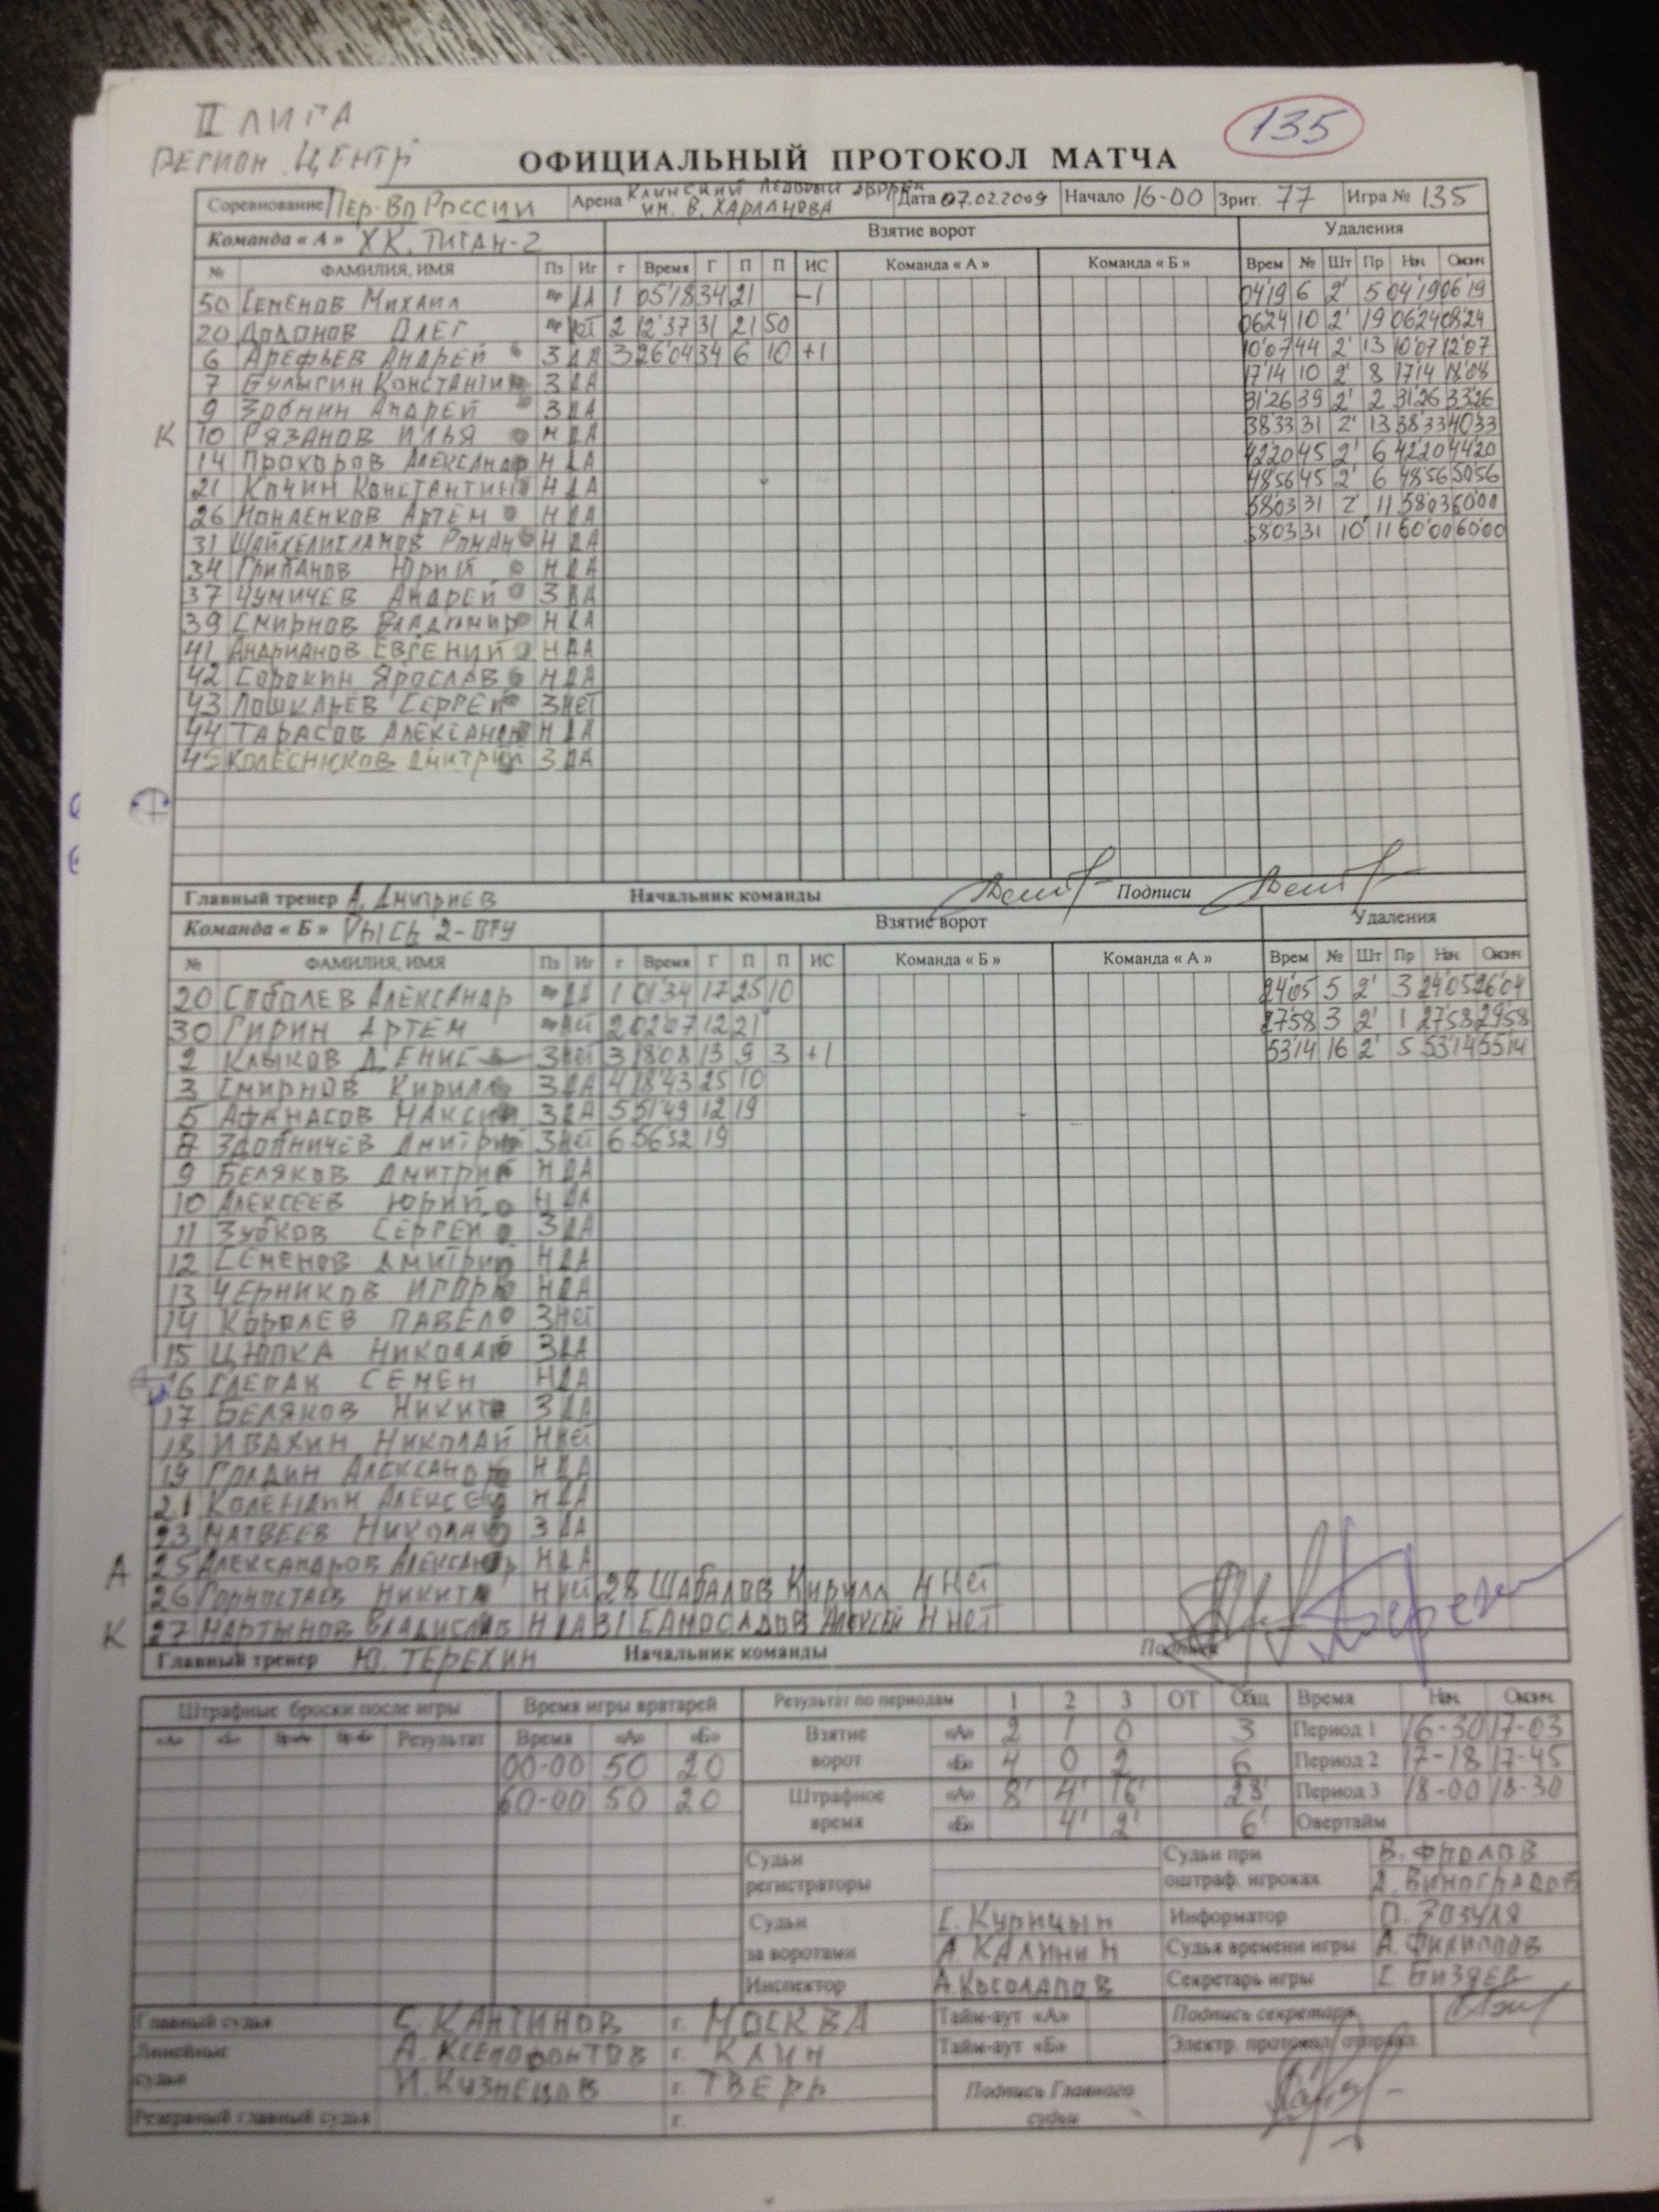 II ЛИГА
РЕГИОН ЦЕНТР
135
ОФИЦИАЛЬНЫЙ ПРОТОКОЛ МАТЧА
Соревнование Пер-во России Арена Клинский Ледовый дворец им. В. Харламова Дата 07.02.2009 Начало 16-00 Зрит. 77 Игра № 135
Команда « А » ХК. ТИТАН-2 Взятие ворот Удаления
№ ФАМИЛИЯ, ИМЯ Пз Иг г Время Г П П ИС Команда « А » Команда « Б » Врем № Шт Пр Нач Оконч
50 Семенов Михаил Вр ДА 1 05'18 34 21 -1 0419 6 2' 5 0419 0619
20 Додонов Олег Вр нет 2 12'37 31 21 50 0624 10 2' 19 0624 0824
6 Арефьев Андрей З ДА 3 26'04 34 6 10 +1 10'07 44 2' 13 10'07 12'07
7 Булыгин Константин З ДА 17'14 10 2' 8 1714 18'08
9 Зобнин Андрей З ДА 31'26 39 2' 2 31'26 33'26
К 10 Рязанов Илья Н ДА 3833 31 2' 13 3833 4033
14 Прохоров Александр Н ДА 4220 45 2' 6 4220 4420
21 Кочин Константин Н ДА 4856 45 2' 6 4856 5056
26 Монаенков Артем Н ДА 5803 31 2' 11 5803 6000
31 Шайхелисламов Роман Н ДА 5803 31 10' 11 60'00 60'00
34 Грибанов Юрий Н ДА
37 Чумичев Андрей З ДА
39 Смирнов Владимир Н ДА
41 Андрианов Евгений Н ДА
42 Сорокин Ярослав Н ДА
43 Лошкарев Сергей З нет
44 Тарасов Александр Н ДА
45 Колесников Дмитрий З ДА
Главный тренер А. Дмитриев Начальник команды Подписи
Команда « Б » Рысь 2-ВТУ Взятие ворот Удаления
№ ФАМИЛИЯ, ИМЯ Пз Иг г Время Г П П ИС Команда « Б » Команда « А » Врем № Шт Пр Нач Оконч
20 Соболев Александр Вр ДА 1 01'34 17 25 10 24'05 5 2' 3 2405 2604
30 Гирин Артем Вр нет 2 02'07 12 21 2758 3 2' 1 2758 2958
2 Клыков Денис З нет 3 18'08 13 9 3 +1 5314 16 2' 5 5314 5514
3 Смирнов Кирилл З ДА 4 18'43 25 10
5 Афанасов Максим З ДА 5 51'49 12 19
8 Здобничев Дмитрий З нет 6 5652 19
9 Беляков Дмитрий Н ДА
10 Алексеев Юрий Н ДА
11 Зубков Сергей З ДА
12 Семенов Дмитрий Н ДА
13 Черников Игорь Н ДА
14 Королев Павел З нет
15 Цюпка Николай З ДА
16 Слепак Семен Н ДА
17 Беляков Никита З ДА
18 Ивахин Николай Н нет
19 Голдин Александр Н ДА
21 Колендин Алексей Н ДА
23 Матвеев Николай З ДА
А 25 Александров Александр Н ДА
26 Горностаев Никита Н нет 28 Шабалов Кирилл Н нет
К 27 Мартынов Владислав Н ДА 31 Самосадов Алексей Н нет
Главный тренер Ю. Терехин Начальник команды Подписи
Штрафные броски после игры Время игры вратарей Результат по периодам 1 2 3 ОТ Общ Время Нач Оконч
«А» «Б» Вр«А» Вр«Б» Результат Время «А» «Б» Взятие ворот «А» 2 1 0 3 Период 1 16-30 17-03
00-00 50 20 «Б» 4 0 2 6 Период 2 17-18 17-45
60-00 50 20 Штрафное время «А» 8' 4' 16' 28' Период 3 18-00 18-30
«Б» 4' 2' 6' Овертайм
Судьи регистраторы Судьи при оштраф. игроках В. Фролов
Д. Виноградов
Судьи за воротами С. Курицын Информатор О. Зозуля
А. Калинин Судья времени игры А. Филиппов
Инспектор А. Косолапов Секретарь игры С. Бизяев
Главный судья С. Кантинов г. Москва Тайм-аут «А» Подпись секретаря
Линейные судьи А. Ксенофонтов г. Клин Тайм-аут «Б» Электр. протокол отправл.
И. Кузнецов г. Тверь Подпись Главного судьи
Резервный главный судья г.